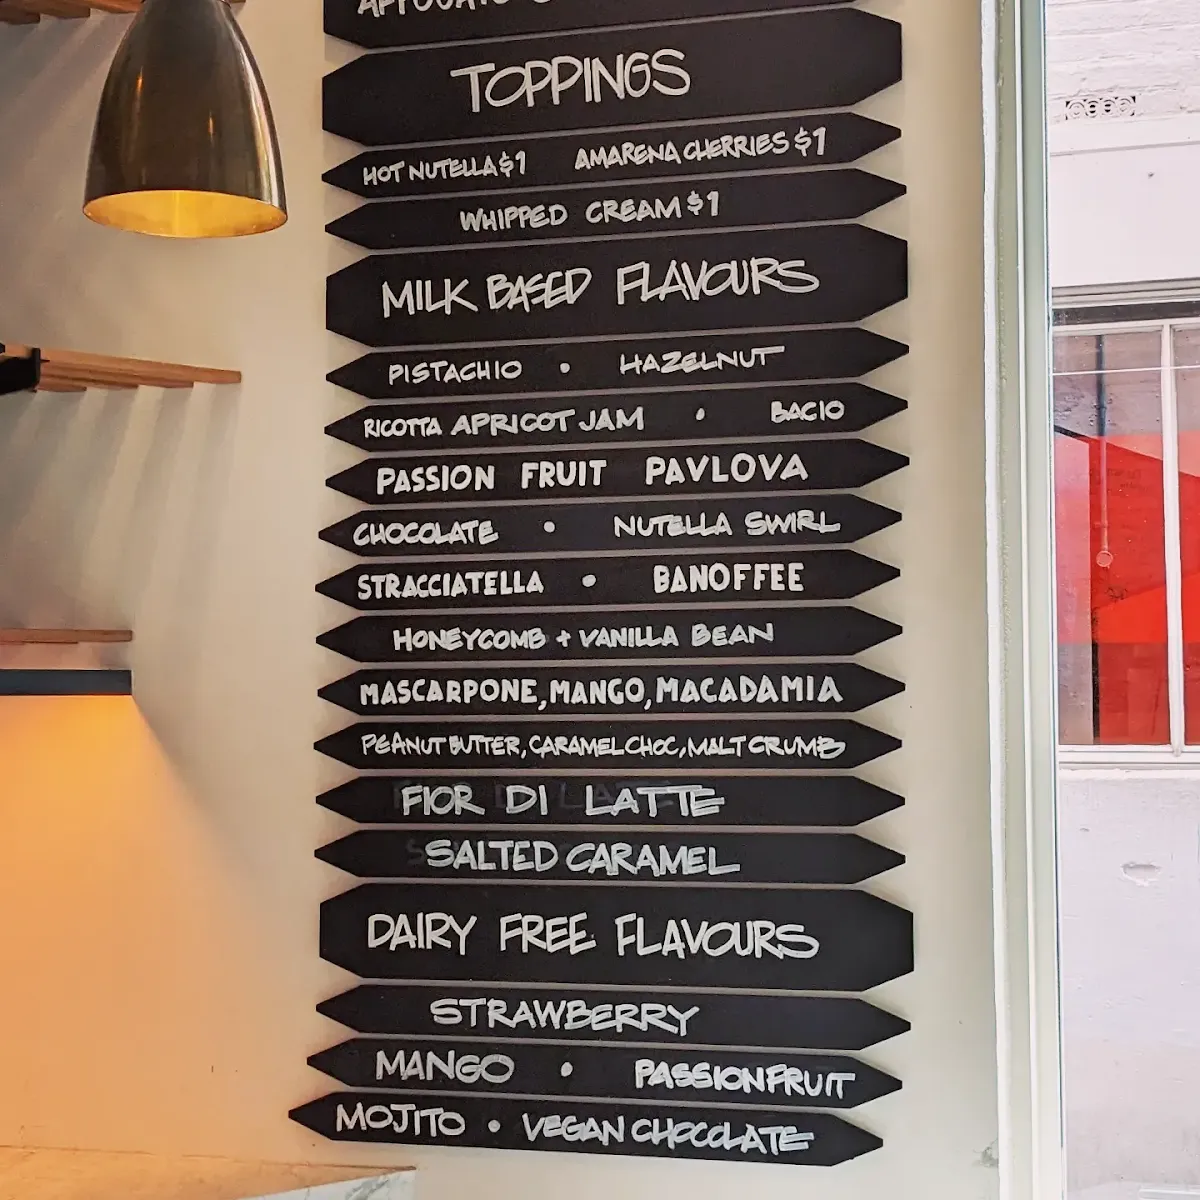 AFFOGATO
TOPPINGS
HOT NUTELLA $1 AMARENA CHERRIES $1
WHIPPED CREAM $1
MILK BASED FLAVOURS
PISTACHIO • HAZELNUT
RICOTTA APRICOT JAM • BACIO
PASSION FRUIT PAVLOVA
CHOCOLATE • NUTELLA SWIRL
STRACCIATELLA • BANOFFEE
HONEYCOMB + VANILLA BEAN
MASCARPONE, MANGO, MACADAMIA
PEANUT BUTTER, CARAMEL CHOC, MALT CRUMB
FIOR DI LATTE
SALTED CARAMEL
DAIRY FREE FLAVOURS
STRAWBERRY
MANGO • PASSIONFRUIT
MOJITO • VEGAN CHOCOLATE